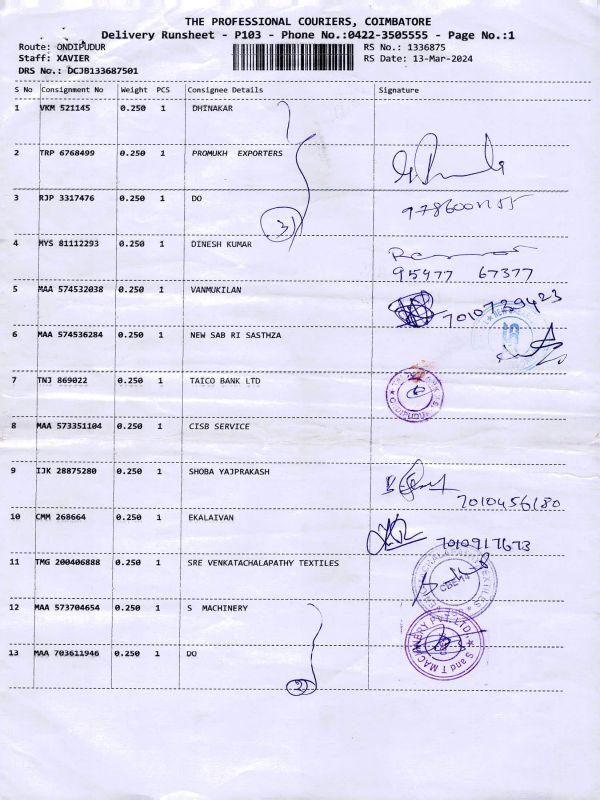 THE PROFESSIONAL COURIERS, COIMBATORE
Delivery Runsheet - P103 - Phone No.:0422-3505555 - Page No.:1
Route: ONDIPUDUR
RS No.: 1336875
Staff: XAVIER
RS Date: 13-Mar-2024
DRS No.: DCJB133687501
S No Consignment No Weight PCS Consignee Details Signature
1 VKM 521145 0.250 1 DHINAKAR
2 TRP 6768499 0.250 1 PROMUKH EXPORTERS
3 RJP 3317476 0.250 1 DO
3
4 MYS 81112293 0.250 1 DINESH KUMAR
95977 67377
5 MAA 574532038 0.250 1 VANMUKILAN
7010739423
6 MAA 574536284 0.250 1 NEW SAB RI SASTHZA
7 TNJ 869022 0.250 1 TAICO BANK LTD
8 MAA 573351104 0.250 1 CISB SERVICE
9 IJK 28875280 0.250 1 SHOBA YAJPRAKASH
7010456180
10 CMM 268664 0.250 1 EKALAIVAN
7010917673
11 TMG 200406888 0.250 1 SRE VENKATACHALAPATHY TEXTILES
12 MAA 573704654 0.250 1 S MACHINERY
S and T MACHINERY PVT. LTD.
13 MAA 703611946 0.250 1 DO
2